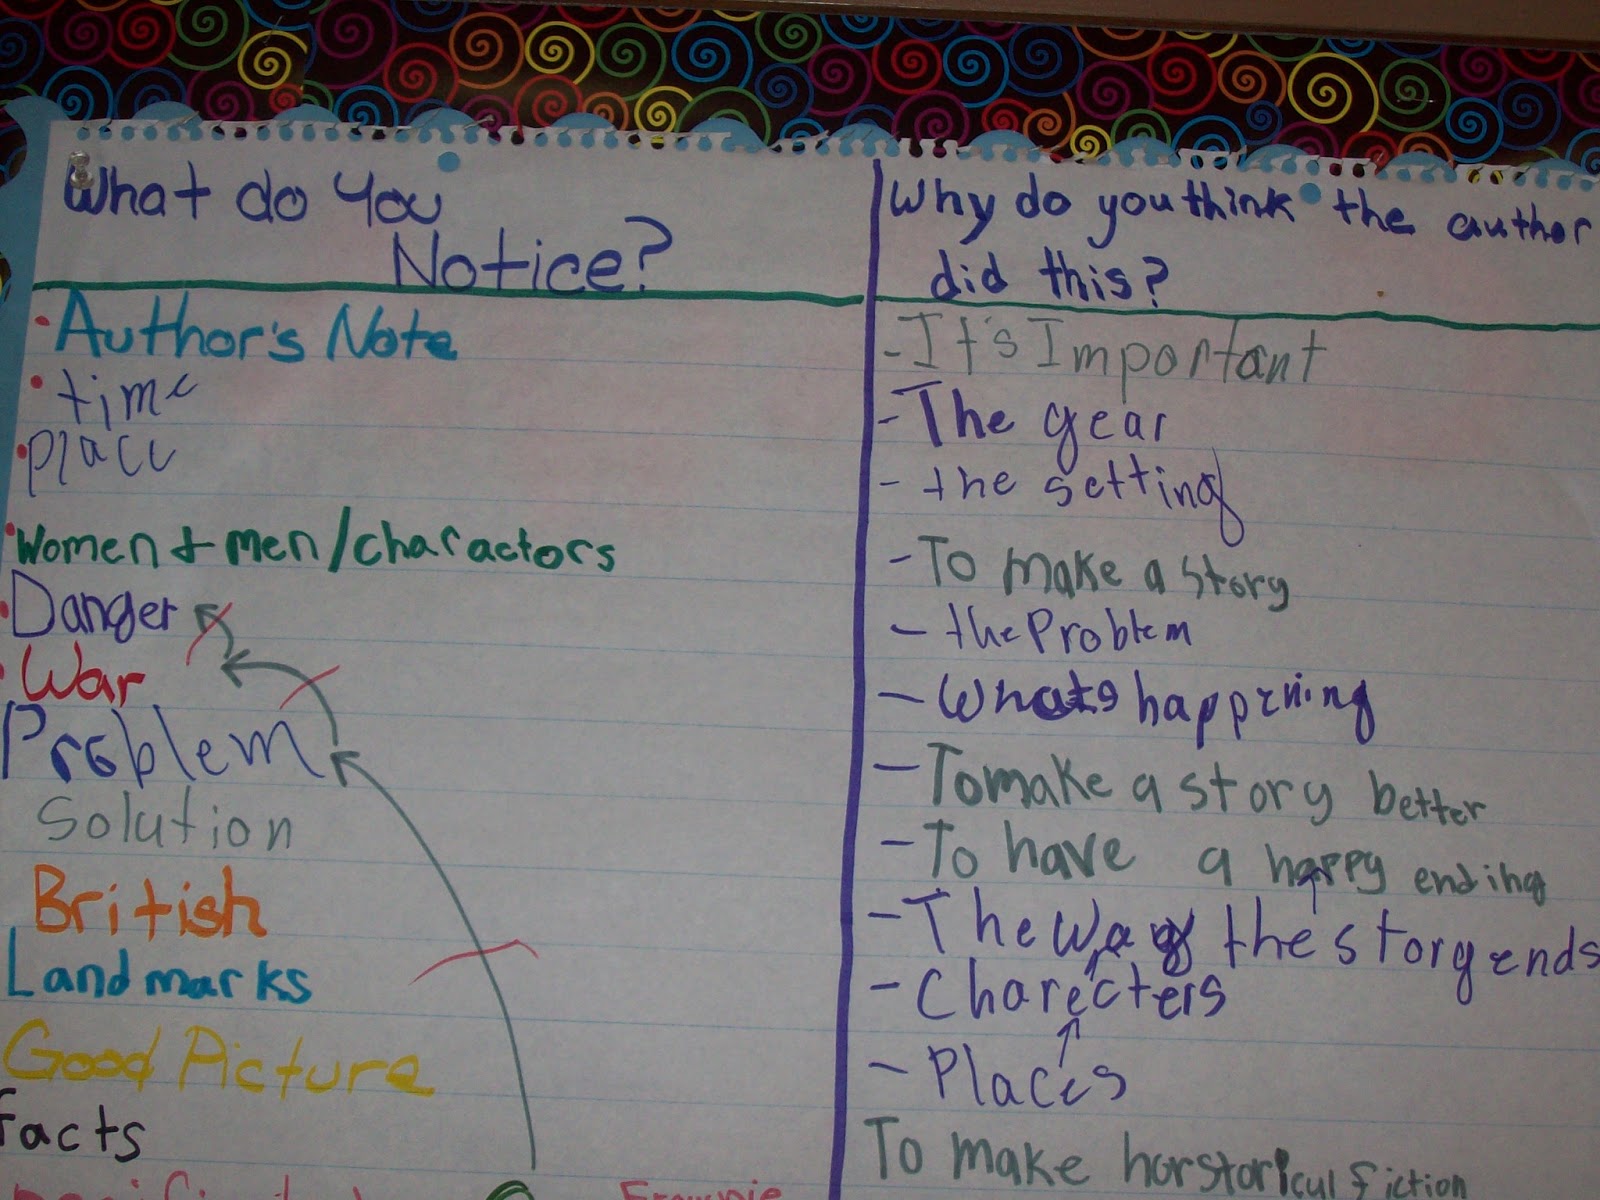 What do You
Notice?
• Author's Note
• time
• place
• Women + men/charactors
• Danger
• War
Problem
Solution
British
Landmarks
Good Picture
facts
Why do you think the author
did this?
- It's Important
- The year
- the setting
- To make a story
- the Problem
- Whats happening
- To make a story better
- To have a happy ending
- The way the story ends
- Charecters
- Places
To make horstorical fiction